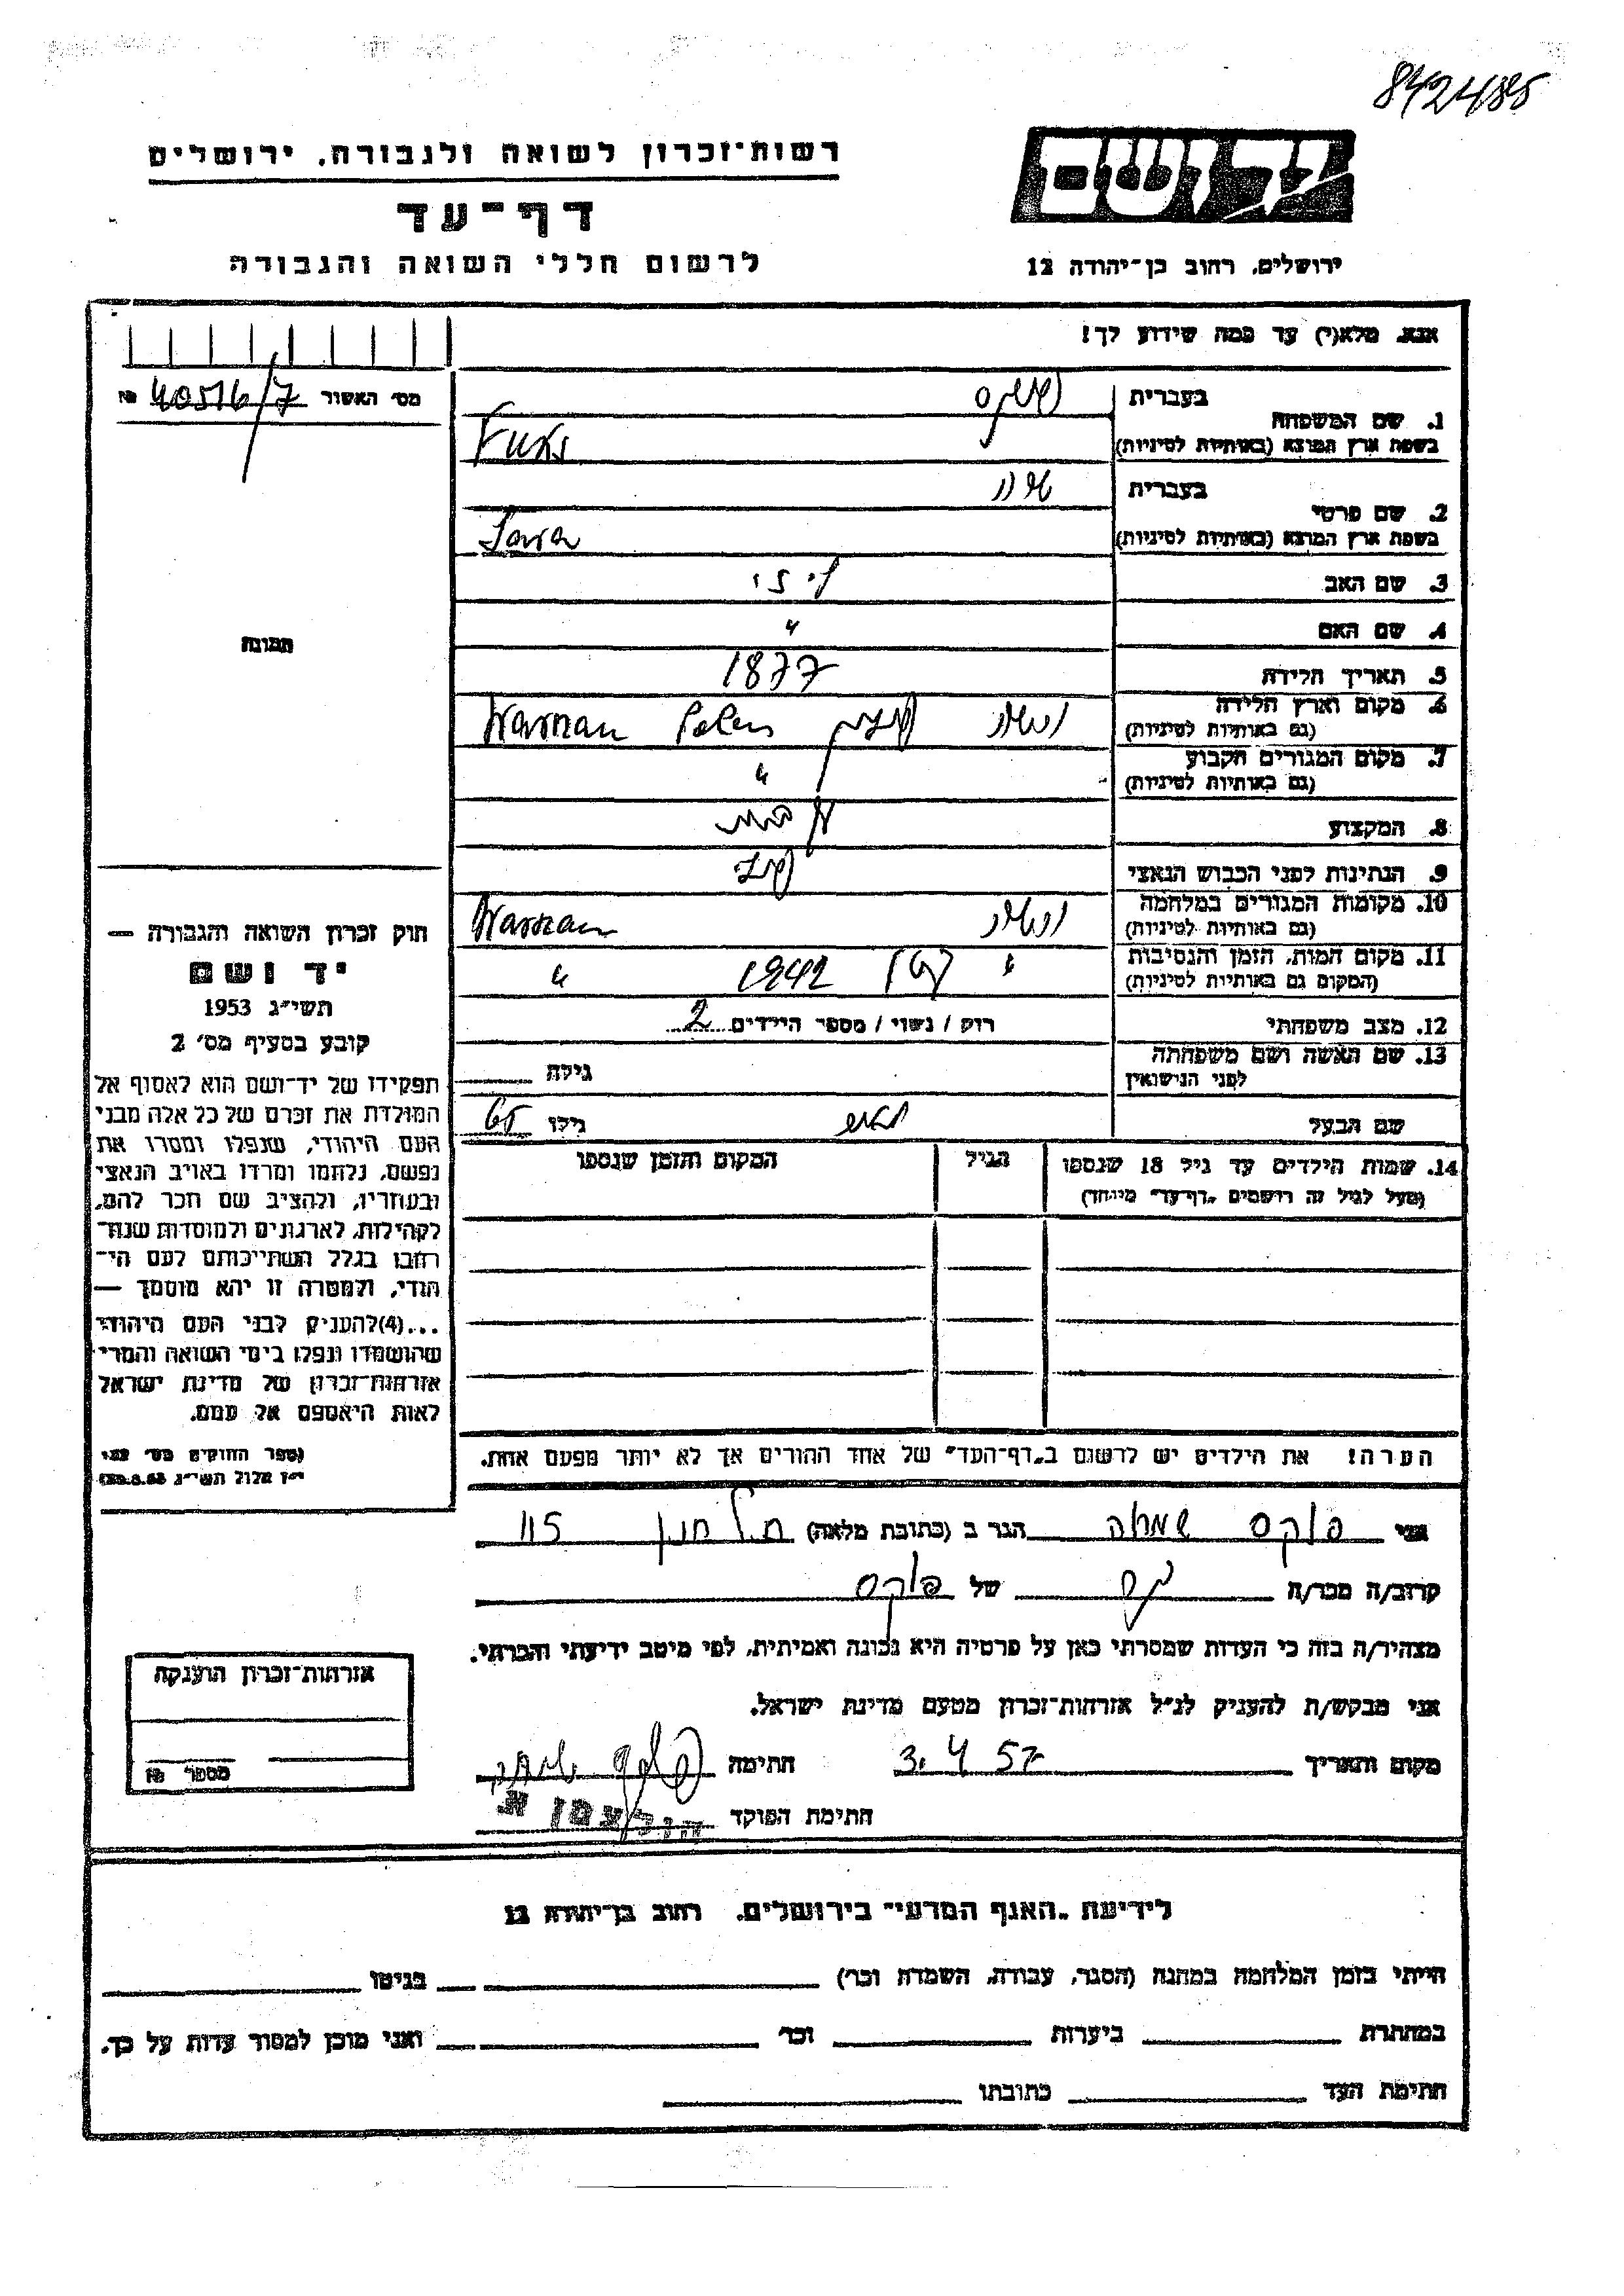 8424185
רשות־זכרון לשואה ולגבורה, ירושלים
יד ושם
דף־עד
לרשום חללי השואה והגבורה
ירושלים, רחוב בן־יהודה 12
אנא, מלא(י) עד כמה שידוע לך!
מס׳ האשור 40516/7 №
1. שם המשפחה
בעברית פוקס
בשפת ארץ המוצא (באותיות לטיניות) Fuks
2. שם פרטי
בעברית שרה
בשפת ארץ המוצא (באותיות לטיניות) Sara
3. שם האב לוי
4. שם האם "
5. תאריך הלידה 1877
6. מקום וארץ הלידה
(גם באותיות לטיניות) ורשה פולין Warszau Polen
7. מקום המגורים הקבוע
(גם באותיות לטיניות) "
8. המקצוע
9. הנתינות לפני הכבוש הנאצי פולני
10. מקומות המגורים במלחמה
(גם באותיות לטיניות) ורשה Warszau
11. מקום המות, הזמן והנסיבות
(המקום גם באותיות לטיניות) " 1942 "
12. מצב משפחתי רוק / נשוי / מספר הילדים 2
13. שם האשה ושם משפחתה
לפני הנישואין גילה
שם הבעל גילו 65
14. שמות הילדים עד גיל 18 שנספו
(מעל לגיל זה רושמים "דף־עד" מיוחד)
הגיל
המקום והזמן שנספו
הערה! את הילדים יש לרשום ב"דף־העד" של אחד ההורים אך לא יותר מפעם אחת.
תמונה
חוק זכרון השואה והגבורה —
יד ושם
תשי״ג 1953
קובע בסעיף מס׳ 2
תפקידו של יד־ושם הוא לאסוף אל
המולדת את זכרם של כל אלה מבני
העם היהודי, שנפלו ומסרו את
נפשם, נלחמו ומרדו באויב הנאצי
ובעוזריו, ולהציב שם וזכר להם,
לקהילות, לארגונים ולמוסדות שנח־
רבו בגלל השתייכותם לעם הי־
הודי, ולמטרה זו יהא מוסמך —
...(4) להעניק לבני העם היהודי
שהושמדו ונפלו בימי השואה והמרי
אזרחות־זכרון של מדינת ישראל
לאות היאספם אל עמם.
(ספר החוקים מס׳ 132,
י״ז אלול תשי״ג 28.8.53)
אני פוקס שמחה הגר ב (כתובת מלאה) תל חנן 115
קרוב/ה מכר/ה של פוקס
מצהיר/ה בזה כי העדות שמסרתי כאן על פרטיה היא נכונה ואמיתית, לפי מיטב ידיעתי והכרתי.
אני מבקש/ת להעניק לנ״ל אזרחות־זכרון מטעם מדינת ישראל.
מקום ותאריך 3.4.57 חתימה פוקס שמחה
חתימת הפוקד הולצמן א
אזרחות־זכרון הוענקה
מספר №
לידיעת "האגף המדעי" בירושלים, רחוב בן־יהודה 12
הייתי בזמן המלחמה במחנה (הסגר, עבודה, השמדה וכו׳) בגיטו
במחתרת ביערות וכו׳ ואני מוכן למסור עדות על כך.
חתימת העד כתובתו